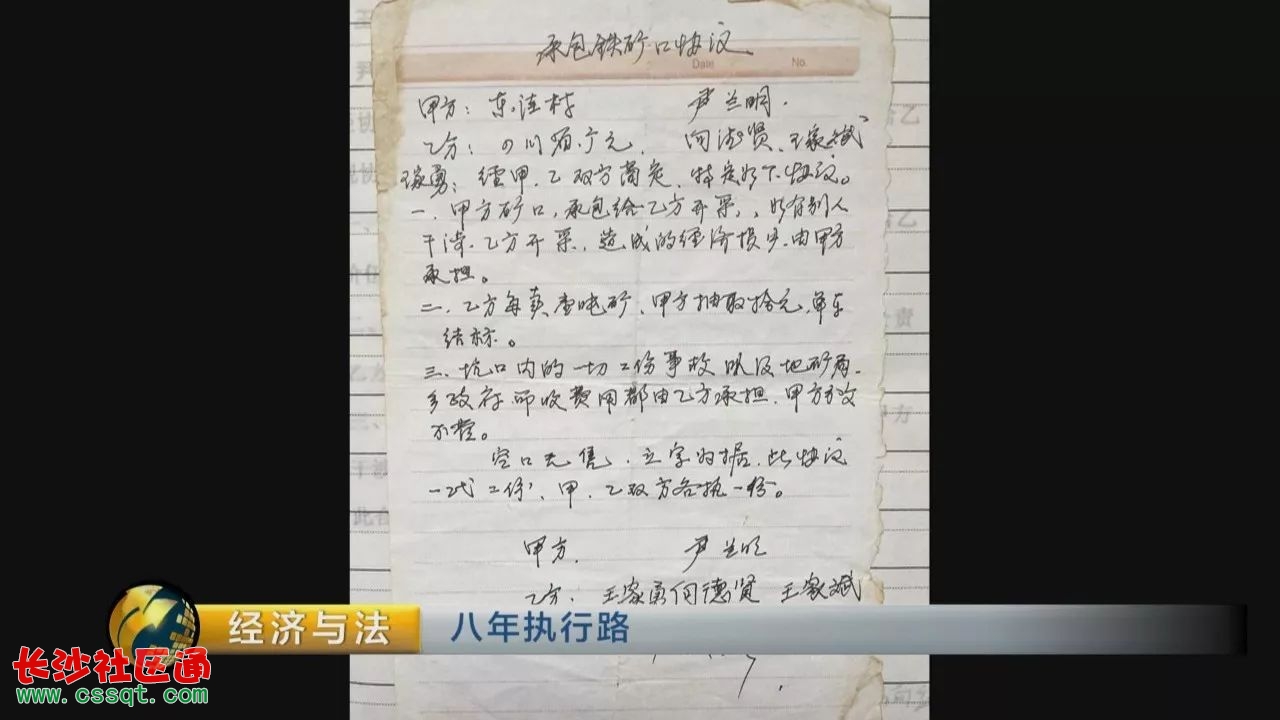 承包铁矿口协议
Date No.
甲方: 东洼村 尹兰明.
乙方: 四川 广元, 何德贤、王家斌
王家勇: 经甲、乙双方商定, 特定如下协议。
一、甲方矿口, 承包给乙方开采, 如有别人
干涉、乙方开采, 造成的经济损失由甲方
承担。
二、乙方每卖壹吨矿、甲方抽取拾元, 单车
结标。
三、坑口内的一切工伤事故以及地矿局、
乡政府所收费用都由乙方承担, 甲方分文
不管。
空口无凭, 立字为据, 此协议
一式二份、甲、乙双方各执一份。
甲方, 尹兰明
乙方: 王家勇 何德贤 王家斌
经济与法 八年执行路
长沙社区通
www.cssqt.com